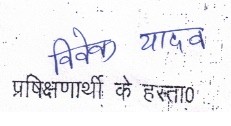 विवेक यादव
प्रषिक्षणार्थी के हस्ता0